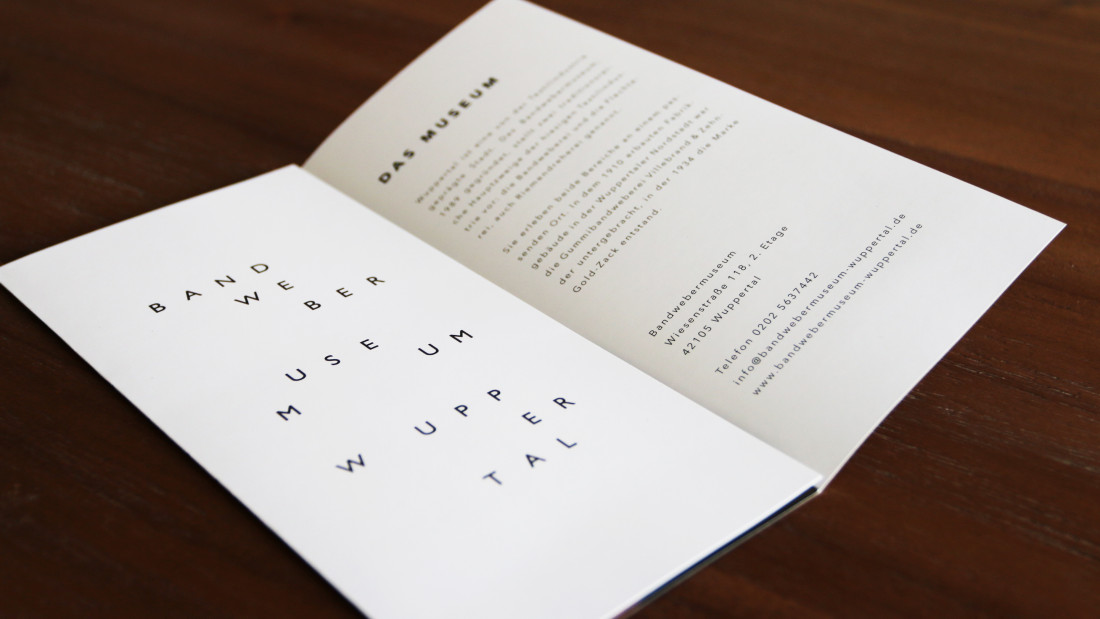 BAND
WE
BER
MUSE
UM
WUPP
ER
TAL
DAS MUSEUM
Wuppertal ist eine von der Textilindustrie
geprägte Stadt. Das Bandwebermuseum,
1989 gegründet, stellt zwei traditionsrei-
che Hauptzweige der hiesigen Textilindus-
trie vor: die Bandweberei und die Flechte
rei, auch Riemendreherei genannt.
Sie erleben beide Bereiche an einem pas
senden Ort. In dem 1910 erbauten Fabrik
gebäude in der Wuppertaler Nordstadt war
die Gummibandweberei Villebrand & Zehn
der untergebracht, in der 1934 die Marke
Gold-Zack entstand.
Bandwebermuseum
Wiesenstraße 118, 2. Etage
42105 Wuppertal
Telefon 0202 5637442
info@bandwebermuseum-wuppertal.de
www.bandwebermuseum-wuppertal.de